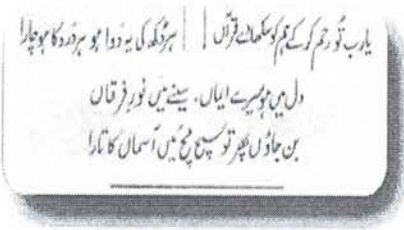 یارب تُو رحم کر کے ہم کو سکھا دے قرآں ہر دُکھ کی یہ دوا ہو ہر درد کا ہو چارا
دل میں ہو میرے ایماں، سینے میں نورِ فرقاں
بن جاؤں پھر تو سچ مچ میں آسماں کا تارا